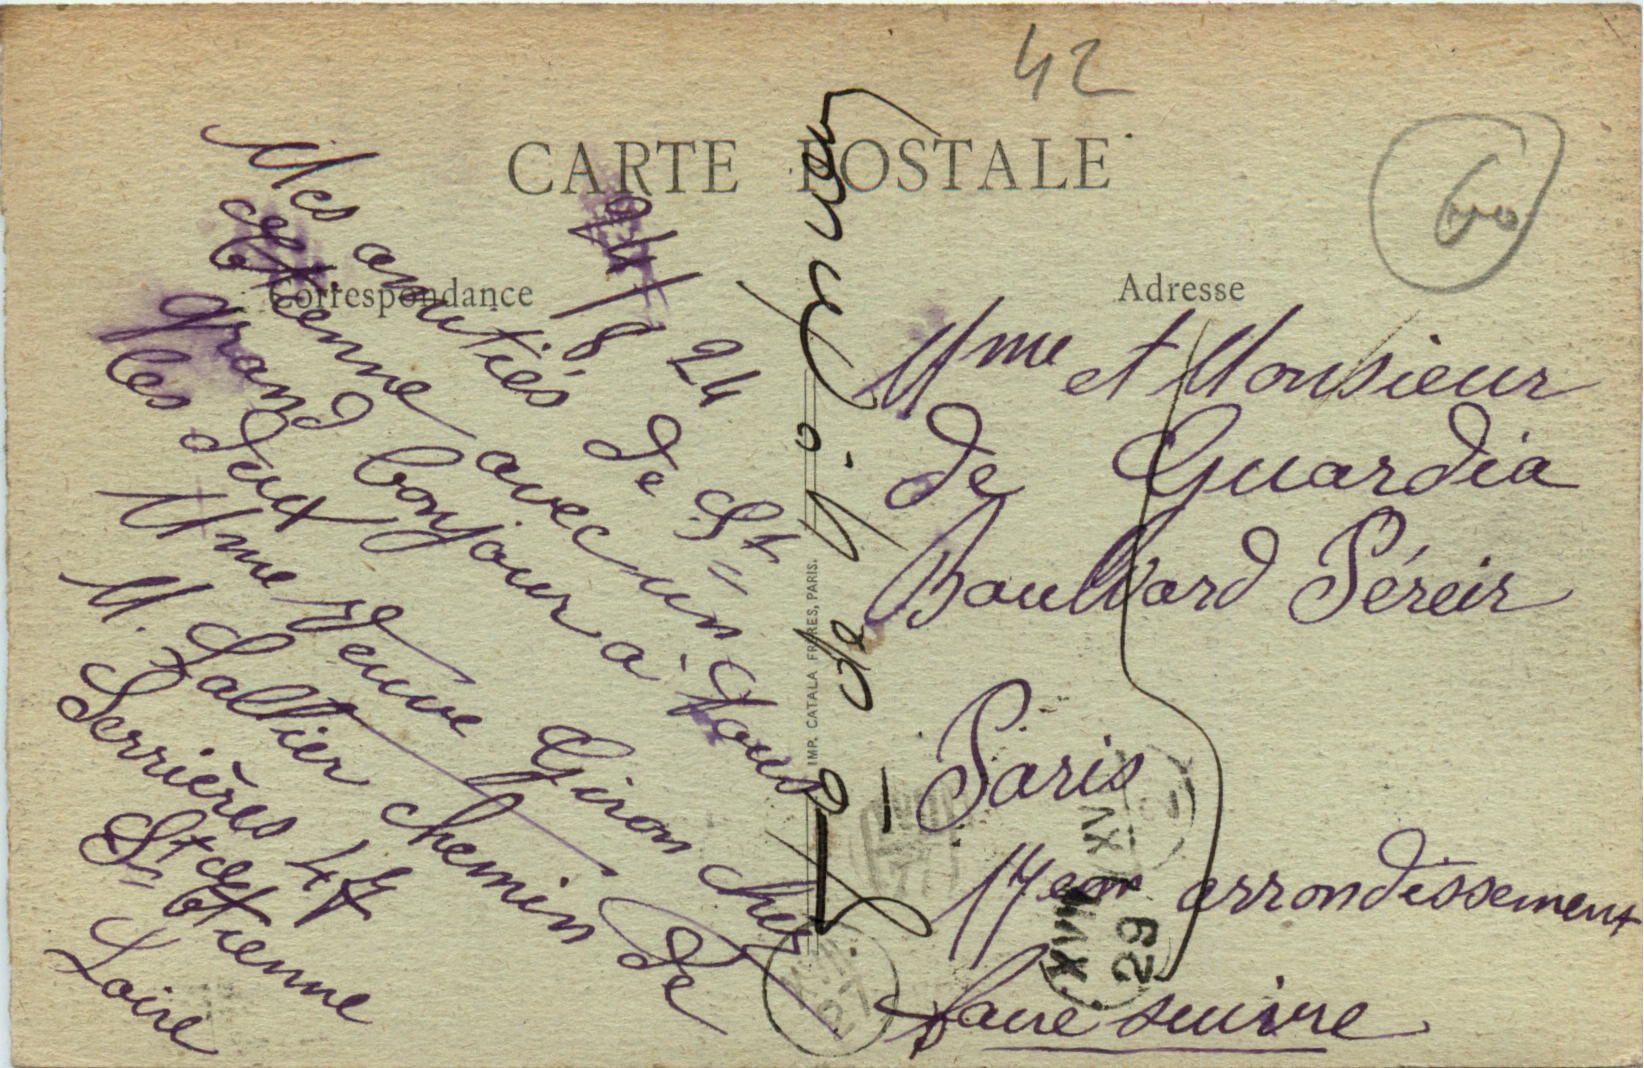 42
CARTE POSTALE
60
Correspondance
Adresse
24/8 24
Mes amitiés de St=
Etienne avec un
grand bonjour à tous
les deux
Mme Veuve Giron chez
M. Sallier chemin de
Serrières 47
St Etienne
Loire
Mme et Monsieur
de Guardia
Boulvard Péreir
Paris
17em arrondissement
faire suivre
de
IMP. CATALA FRÈRES, PARIS.
XVII
29
XV
27